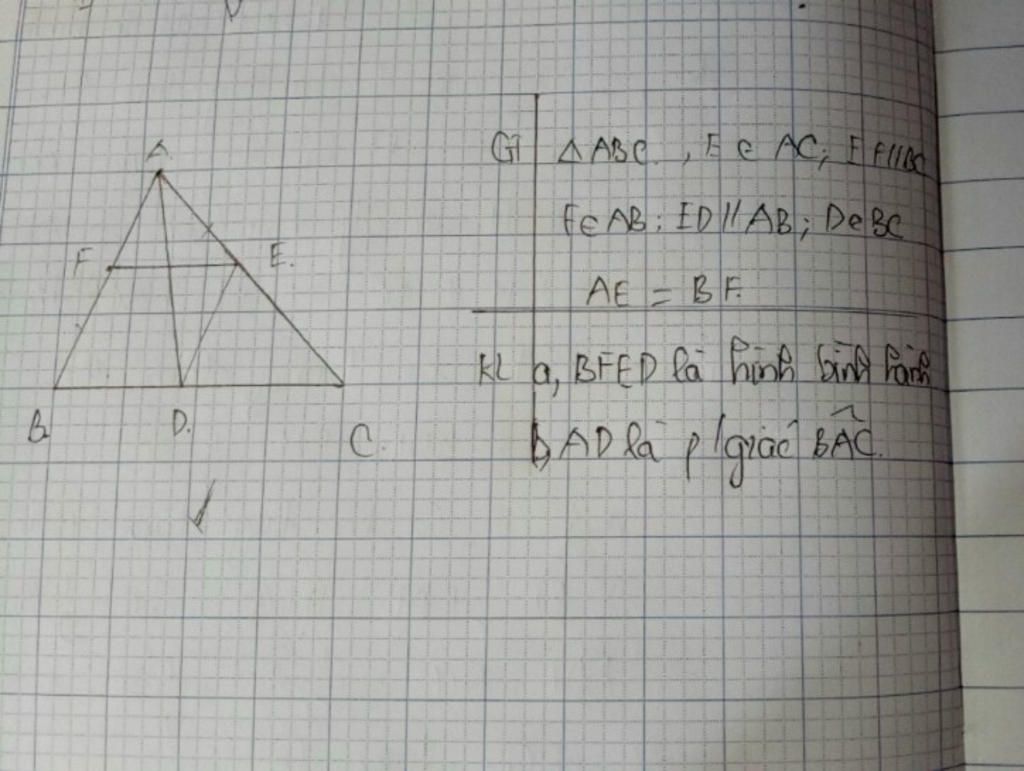 A
F
E.
B
D.
C.
GT ΔABC., E ∈ AC; EF//BC
F∈AB; ED//AB; D∈BC
AE = BF.
KL a, BFED là hình bình hành
b, AD là p/giác BAC.